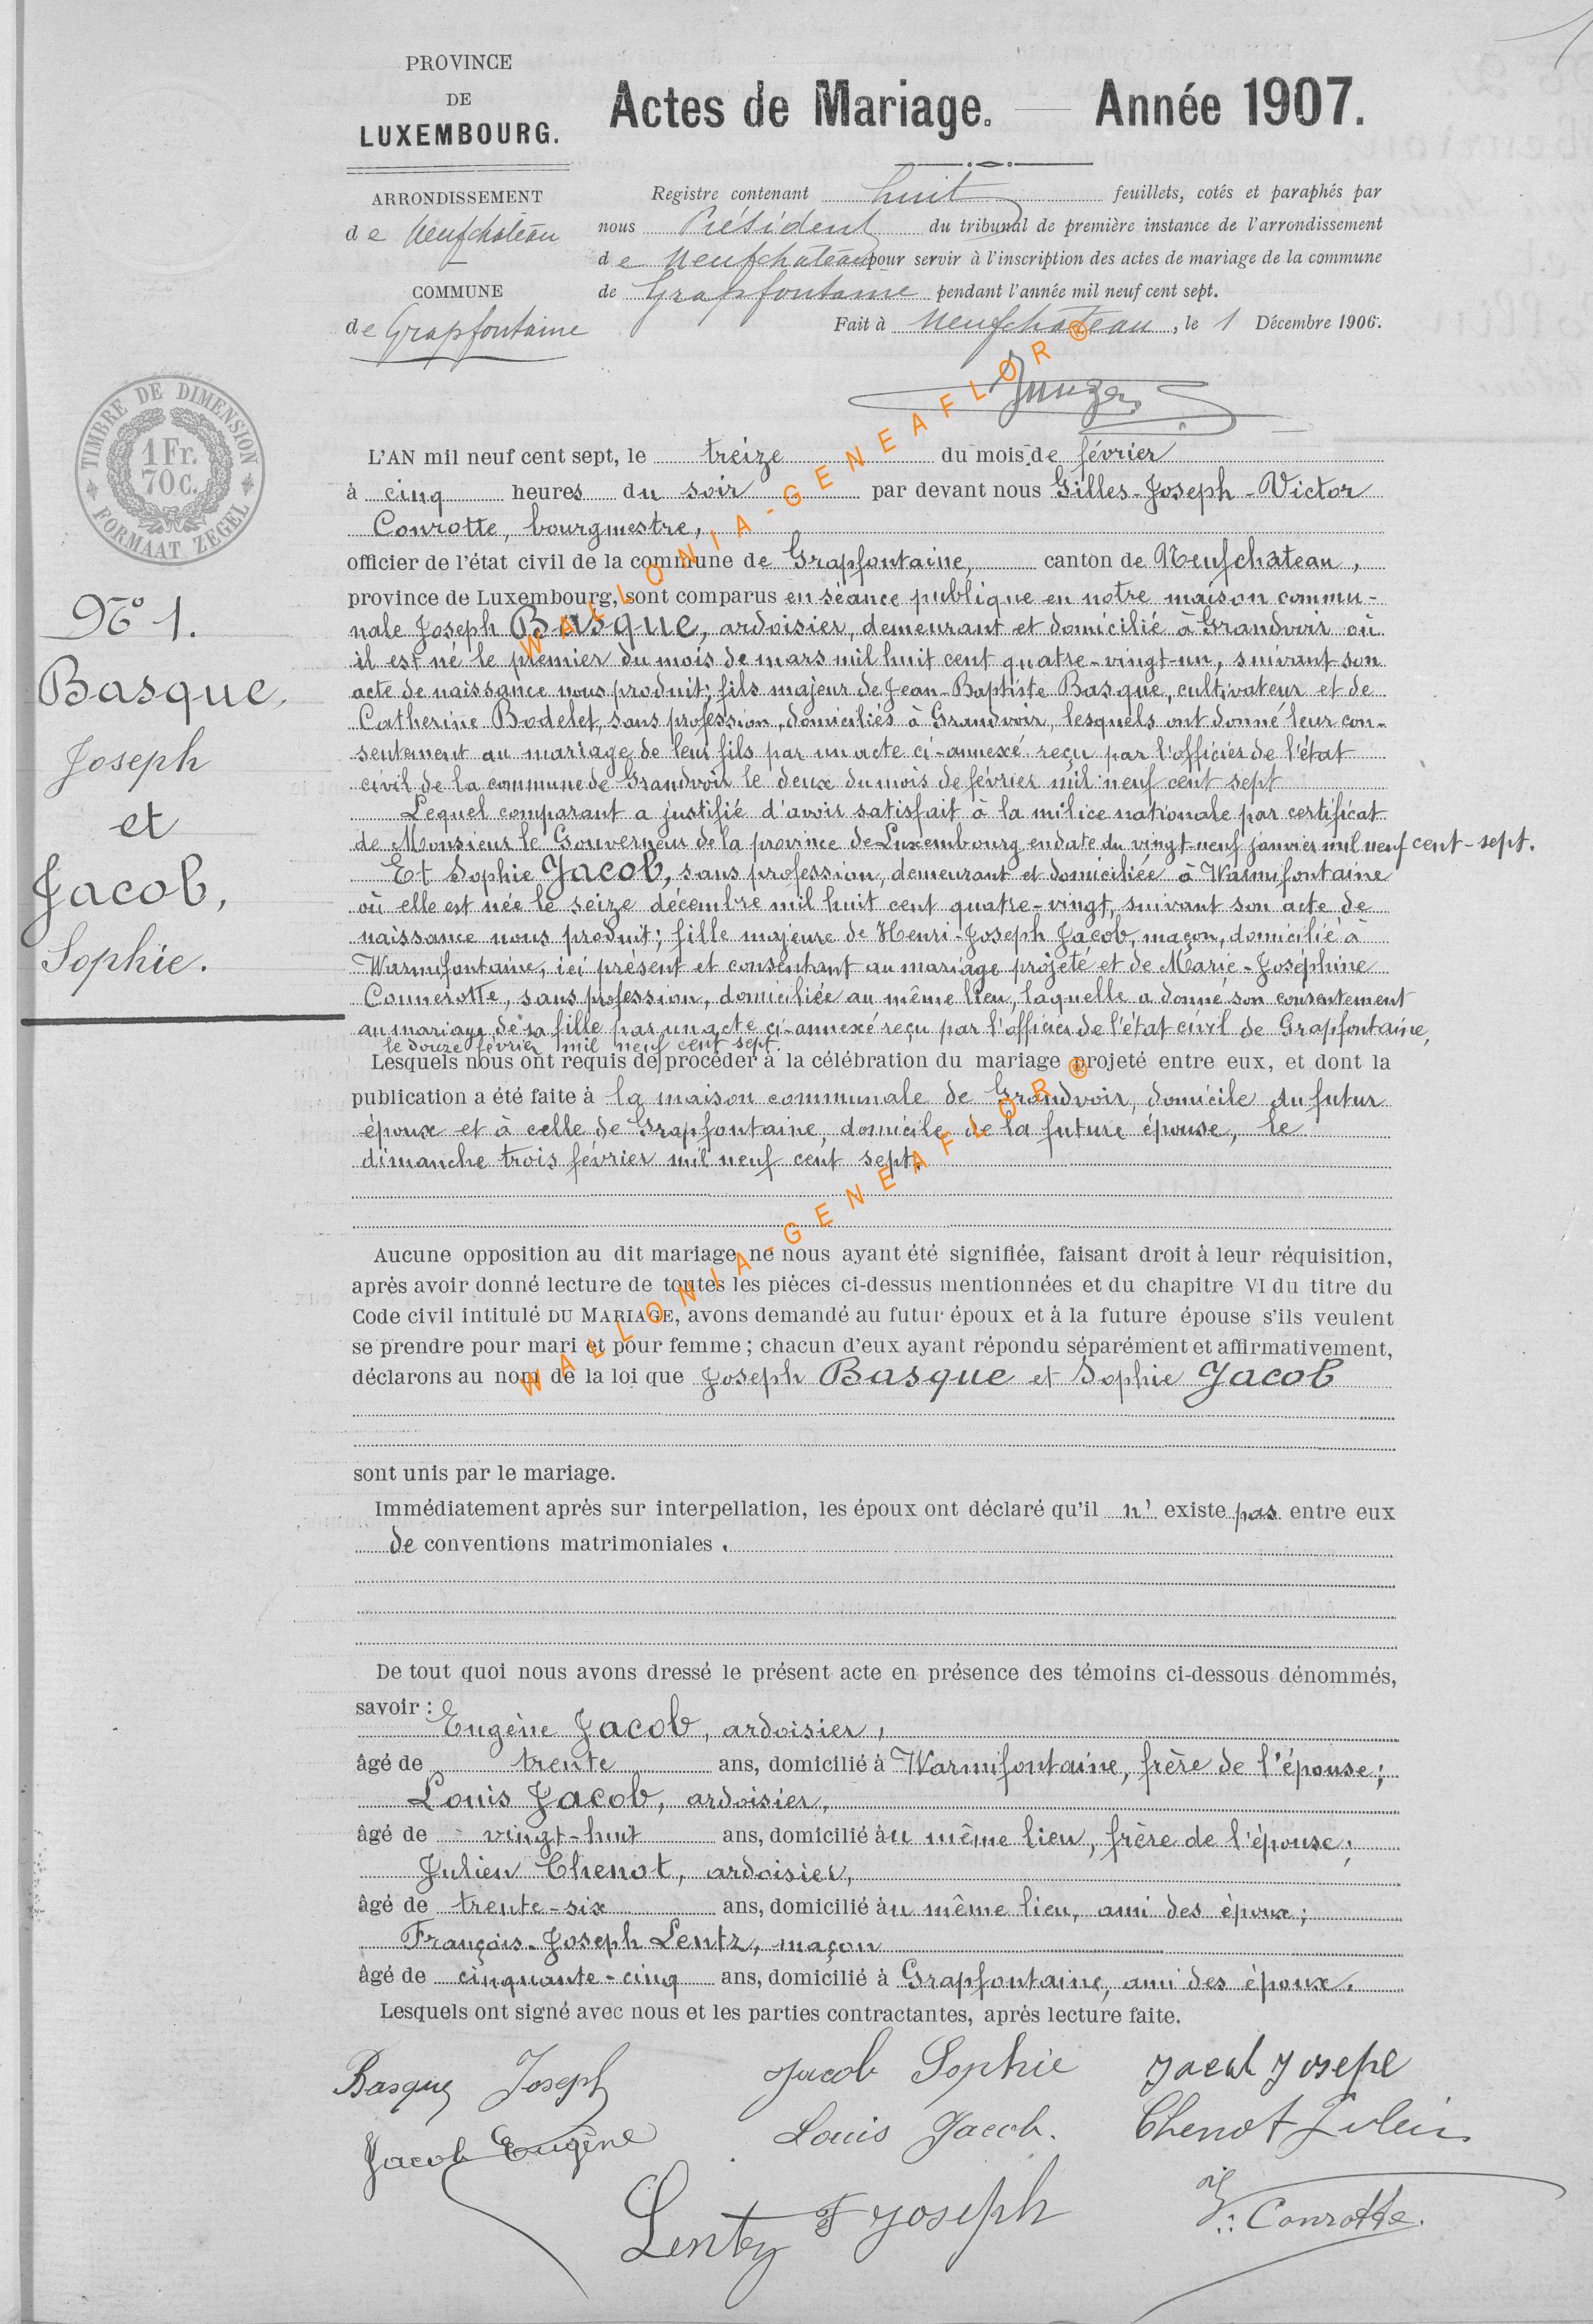 PROVINCE
DE
LUXEMBOURG.
Actes de Mariage. — Année 1907.
ARRONDISSEMENT
de Neufchâteau
COMMUNE
de Grapfontaine
Registre contenant huit feuillets, cotés et paraphés par
nous Président du tribunal de première instance de l'arrondissement
de Neufchâteau pour servir à l'inscription des actes de mariage de la commune
de Grapfontaine pendant l'année mil neuf cent sept.
Fait à Neufchâteau, le 1 Décembre 1906.
TIMBRE DE DIMENSION
1 Fr.
70 c.
FORMAAT ZEGEL
No 1.
Basque,
Joseph
et
Jacob,
Sophie.
L'AN mil neuf cent sept, le treize du mois de février
à cinq heures du soir par devant nous Gilles-Joseph-Victor
Conrotte, bourgmestre,
officier de l'état civil de la commune de Grapfontaine, canton de Neufchâteau,
province de Luxembourg, sont comparus en séance publique en notre maison commu-
nale Joseph Basque, ardoisier, demeurant et domicilié à Grandvoir où
il est né le premier du mois de mars mil huit cent quatre-vingt-un, suivant son
acte de naissance nous produit; fils majeur de Jean-Baptiste Basque, cultivateur et de
Catherine Bodelet, sans profession, domiciliés à Grandvoir, lesquels ont donné leur con-
sentement au mariage de leur fils par un acte ci-annexé reçu par l'officier de l'état
civil de la commune de Grandvoir le deux du mois de février mil neuf cent sept
Lequel comparant a justifié d'avoir satisfait à la milice nationale par certificat
de Monsieur le Gouverneur de la province de Luxembourg en date du vingt-neuf janvier mil neuf cent-sept.
Et Sophie Jacob, sans profession, demeurant et domiciliée à Warmifontaine
où elle est née le seize décembre mil huit cent quatre-vingt, suivant son acte de
naissance nous produit; fille majeure de Henri-Joseph Jacob, maçon, domicilié à
Warmifontaine, ici présent et consentant au mariage projeté et de Marie-Joséphine
Connerotte, sans profession, domiciliée au même lieu, laquelle a donné son consentement
au mariage de sa fille par un acte ci-annexé reçu par l'officier de l'état civil de Grapfontaine,
le douze février mil neuf cent sept.
Lesquels nous ont requis de procéder à la célébration du mariage projeté entre eux, et dont la
publication a été faite à la maison communale de Grandvoir, domicile du futur
époux et à celle de Grapfontaine, domicile de la future épouse, le
dimanche trois février mil neuf cent sept.
Aucune opposition au dit mariage ne nous ayant été signifiée, faisant droit à leur réquisition,
après avoir donné lecture de toutes les pièces ci-dessus mentionnées et du chapitre VI du titre du
Code civil intitulé DU MARIAGE, avons demandé au futur époux et à la future épouse s'ils veulent
se prendre pour mari et pour femme ; chacun d'eux ayant répondu séparément et affirmativement,
déclarons au nom de la loi que Joseph Basque et Sophie Jacob
sont unis par le mariage.
Immédiatement après sur interpellation, les époux ont déclaré qu'il n' existe pas entre eux
de conventions matrimoniales.
De tout quoi nous avons dressé le présent acte en présence des témoins ci-dessous dénommés,
savoir :
Eugène Jacob, ardoisier,
âgé de trente ans, domicilié à Warmifontaine, frère de l'épouse;
Louis Jacob, ardoisier,
âgé de vingt-huit ans, domicilié àu même lieu, frère de l'épouse;
Julien Chenot, ardoisier,
âgé de trente-six ans, domicilié àu même lieu, ami des époux;
François-Joseph Lentz, maçon
âgé de cinquante-cinq ans, domicilié à Grapfontaine, ami des époux.
Lesquels ont signé avec nous et les parties contractantes, après lecture faite.
Basque Joseph Jacob Sophie Jacob Joseph
Jacob Eugène Louis Jacob. Chenot Julien
Lentz F Joseph Conrotte.
WALLONIA-GENEAFLOR®
WALLONIA-GENEAFLOR®